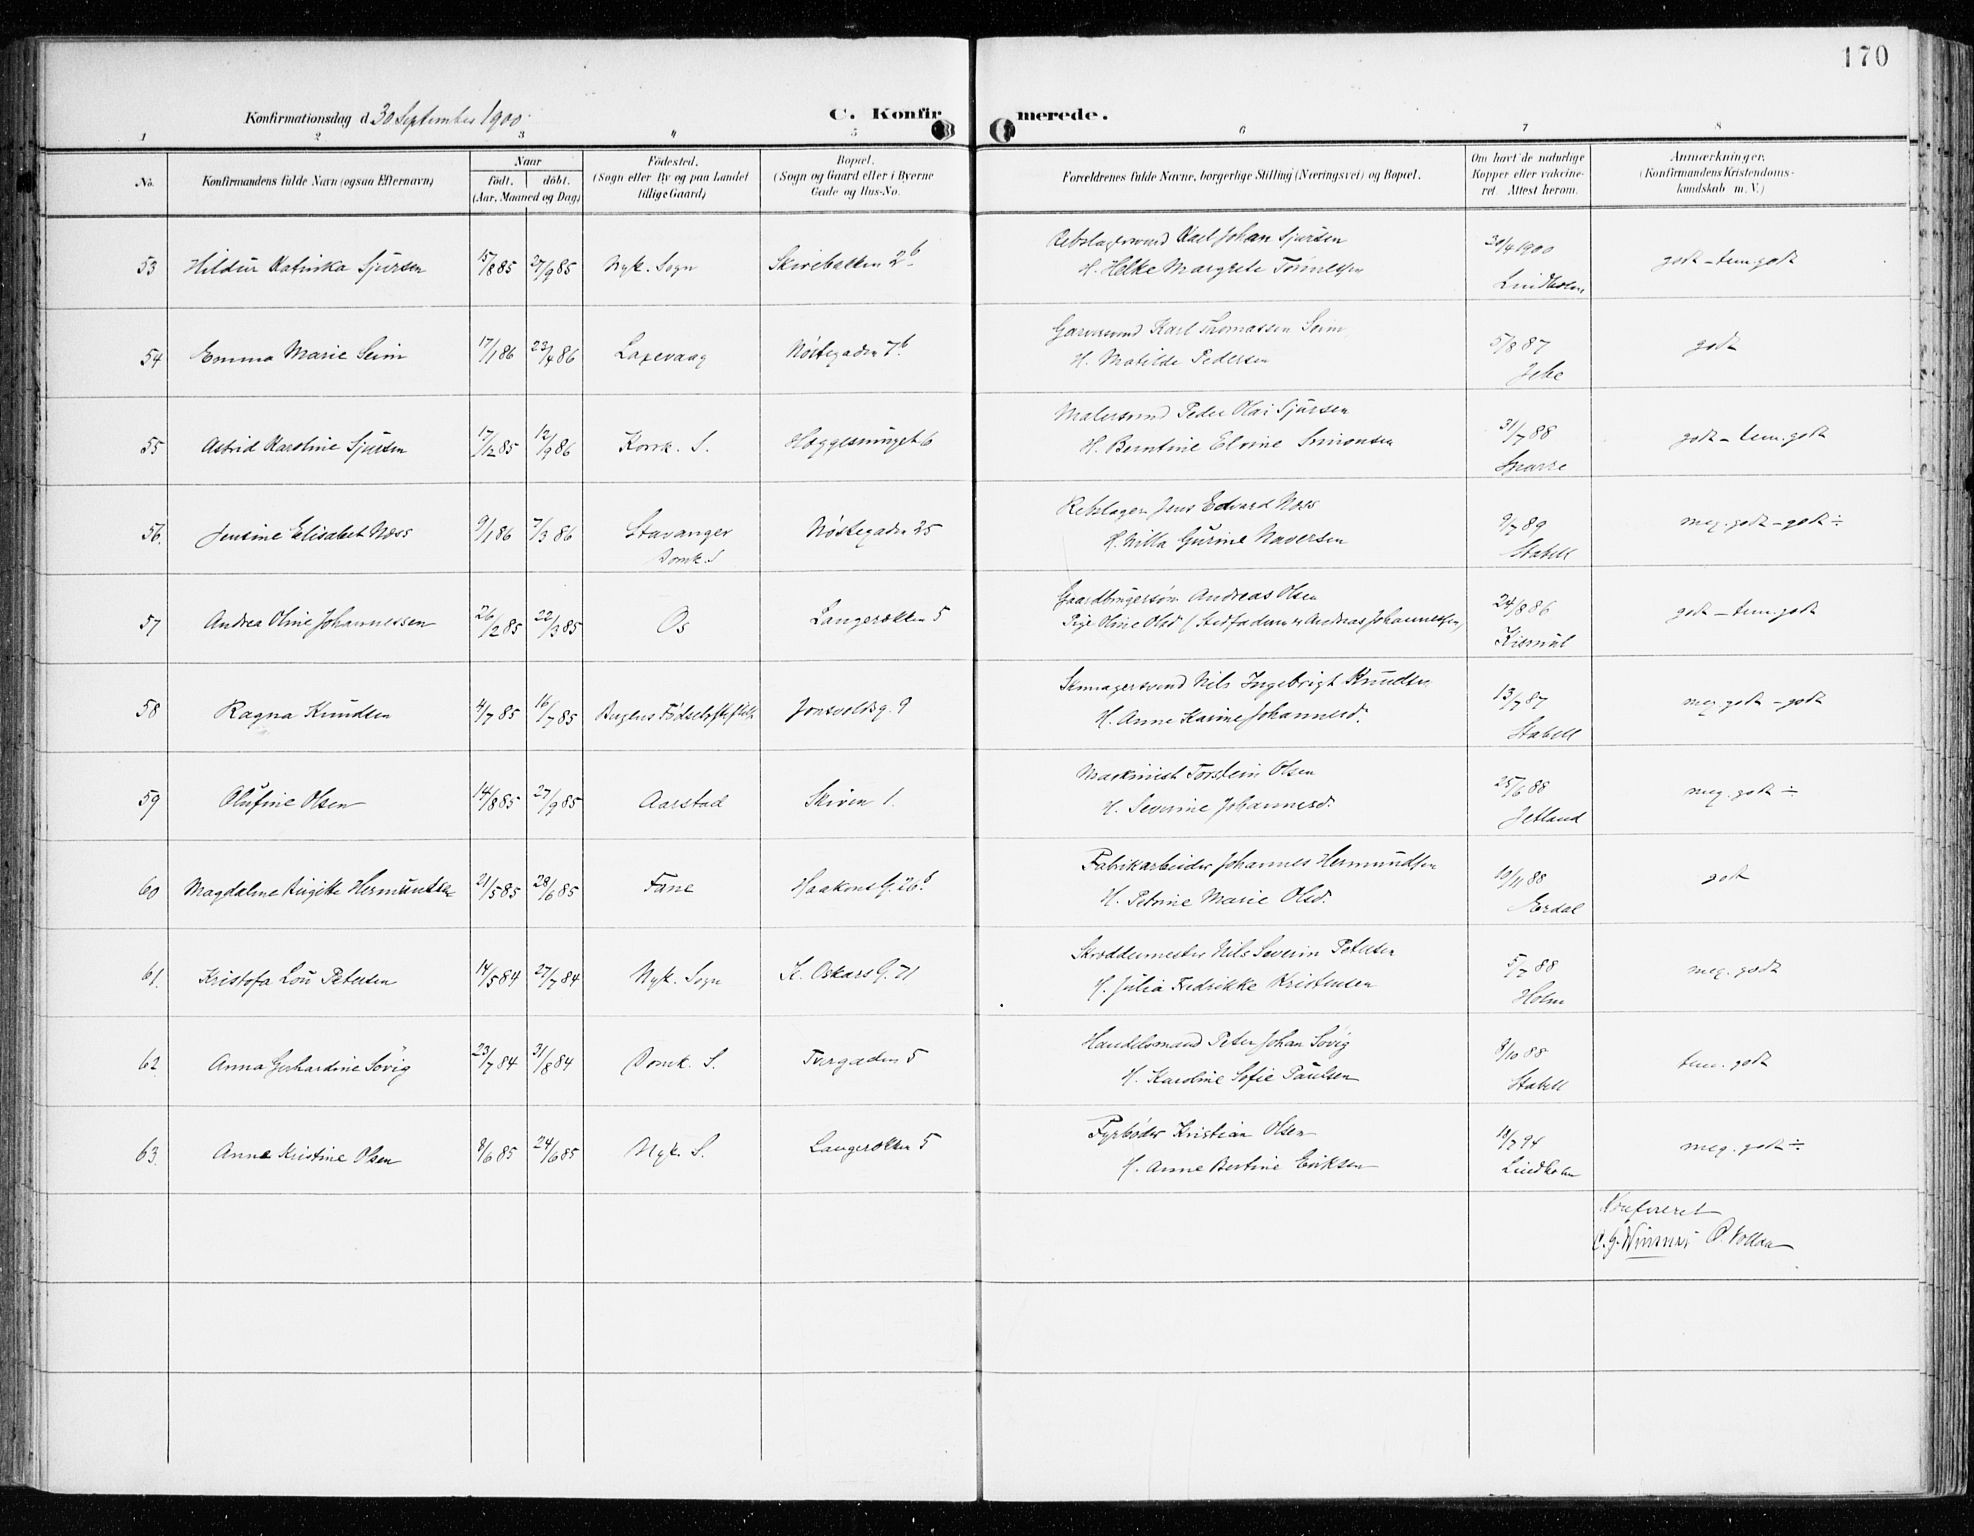 170
Konfirmationsdag d. 30 September 1900. C. Konfirmerede.
1 2 3 " 5 6 7 8
No. Konfirmandens fulde Navn (ogsaa Efternavn) Naar født. døbt. (Aar, Maaned og Dag) Fødested. (Sogn eller By og paa Landet tillige Gaard) Bopæl. (Sogn og Gaard eller i Byerne Gade og Hus-No. Forældrenes fulde Navne, borgerlige Stilling (Næringsvei) og Bopæl. Om havt de naturlige Kopper eller vakcineret. Attest herom. Anmærkninger. (Konfirmandens Kristendomskundskab m. V.)
53 Hildur Katinka Sjursen 15/8 85 27/9 85 Nyk. Sogn Skivebakken 2b. Rebslagersvend Karl Johan Sjursen 20/4 1900 godt - tem. godt
H. Helke Margrete Tønnesen Lindholm
54 Emma Marie Seim 17/1 86 23/4 86 Laxevaag Nøstegaden 7b Garversvend Karl Thomassen Seim 5/8 87 godt
H. Matilde Pedersen Jebe
55 Astrid Karoline Sjursen 17/12 85 12/9 86 Korsk. S. Heggesmuget 6 Malersvend Peder Olai Sjursen 31/7 88 godt - tem. godt
H. Berntine Elvine Simonsen Sparre
56. Jensine Elisabet Næss 9/1 86 7/3 86 Stavanger Domk. S Nøstegaden 25 Rebslager Jens Edvard Næss 9/7 89 meg. godt - godt ÷
H. Nilla Gurine Naversen Stabell
57 Andrea Oline Johannessen 26/2 85 22/3 85 Os Langerækken 5 Gaardbrugersøn Andreas Olsen 24/8 86 godt - tem. godt
Pige Oline Olsd (Stedfaderen Andreas Johannessen) Kismul
58 Ragna Knudsen 4/7 85 16/7 85 Bergens Fødselsstiftelse Jonsvoldsg. 9 Skomagersvend Nils Ingebrigt Knudsen 13/7 87 meg. godt - godt
H. Anne Karine Johannesd. Stabell
59 Olufine Olsen 14/8 85 27/9 85 Aarstad Skiven 1. Maskinist Torstein Olsen 25/6 88 meg. godt ÷
H. Severine Johannesd. Jetland
60 Magdalene Birgitte Hermundsen 21/5 85 28/6 85 Fane Haakons G. 26b. Fabrikarbeider Johannes Hermundsen 10/11 88 godt
H. Petrine Marie Olsd. Erdal
61. Kristofa Lou Petersen 14/5 84 27/7 84 Nyk. Sogn K. Oskars G. 71 Skræddermester Nils Severin Petersen 5/7 88 meg. godt
H. Julia Fredrikke Kristensen Holm
62 Anna Gerhardine Søvig 23/7 84 31/8 84 Domk. S. Tvergaden 5 Handelsmand Peter Johan Søvig 8/10 88 tem. godt
H. Karoline Sofie Paulsen Stabell
63. Anne Kristine Olsen 8/6 85 24/6 85 Nyk. S. Langerækken 5 Fyrbøder Kristian Olsen 18/7 94 meg. godt ÷
H. Anne Bertine Eriksen Lindholm
Konfereret
C. G. O. Vollan